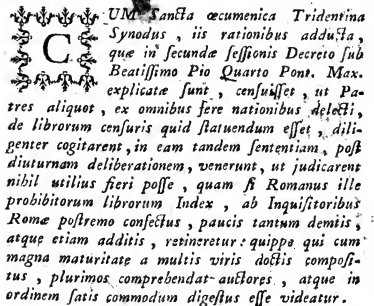 CUM Sancta œcumenica Tridentina
Synodus , iis rationibus adducta,
quæ in ſecundæ ſeſſionis Decreto ſub
Beatiſſimo Pio Quarto Pont. Max.
explicatæ ſunt , cenſuiſſet , ut Pa-
tres aliquot , ex omnibus fere nationibus delecti,
de librorum cenſuris quid ſtatuendum eſſet , dili-
genter cogitarent, in eam tandem ſententiam, poſt
diuturnam deliberationem, venerunt, ut judicarent
nihil utilius fieri poſſe , quam ſi Romanus ille
prohibitorum librorum Index , ab Inquiſitoribus
Romæ poſtremo confectus , paucis tantum demtis,
atque etiam additis , retineretur : quippe qui cum
magna maturitate a multis viris doctis compoſi-
tus , plurimos comprehendat auctores , atque in
ordinem ſatis commodum digeſtus eſſe videatur .